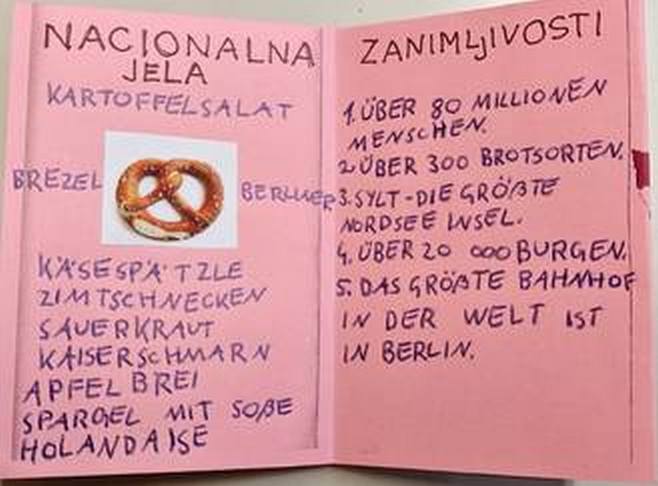 NACIONALNA
JELA
KARTOFFELSALAT
BREZEL
BERLINER
KÄSESPÄTZLE
ZIMTSCHNECKEN
SAUERKRAUT
KAISERSCHMARN
APFELBREI
SPARGEL MIT SOßE
HOLANDAISE
ZANIMLJIVOSTI
1. ÜBER 80 MILLIONEN
MENSCHEN.
2. ÜBER 300 BROTSORTEN.
3. SYLT - DIE GRÖßTE
NORDSEE INSEL.
4. ÜBER 20 000 BURGEN.
5. DAS GRÖßTE BAHNHOF
IN DER WELT IST
IN BERLIN.